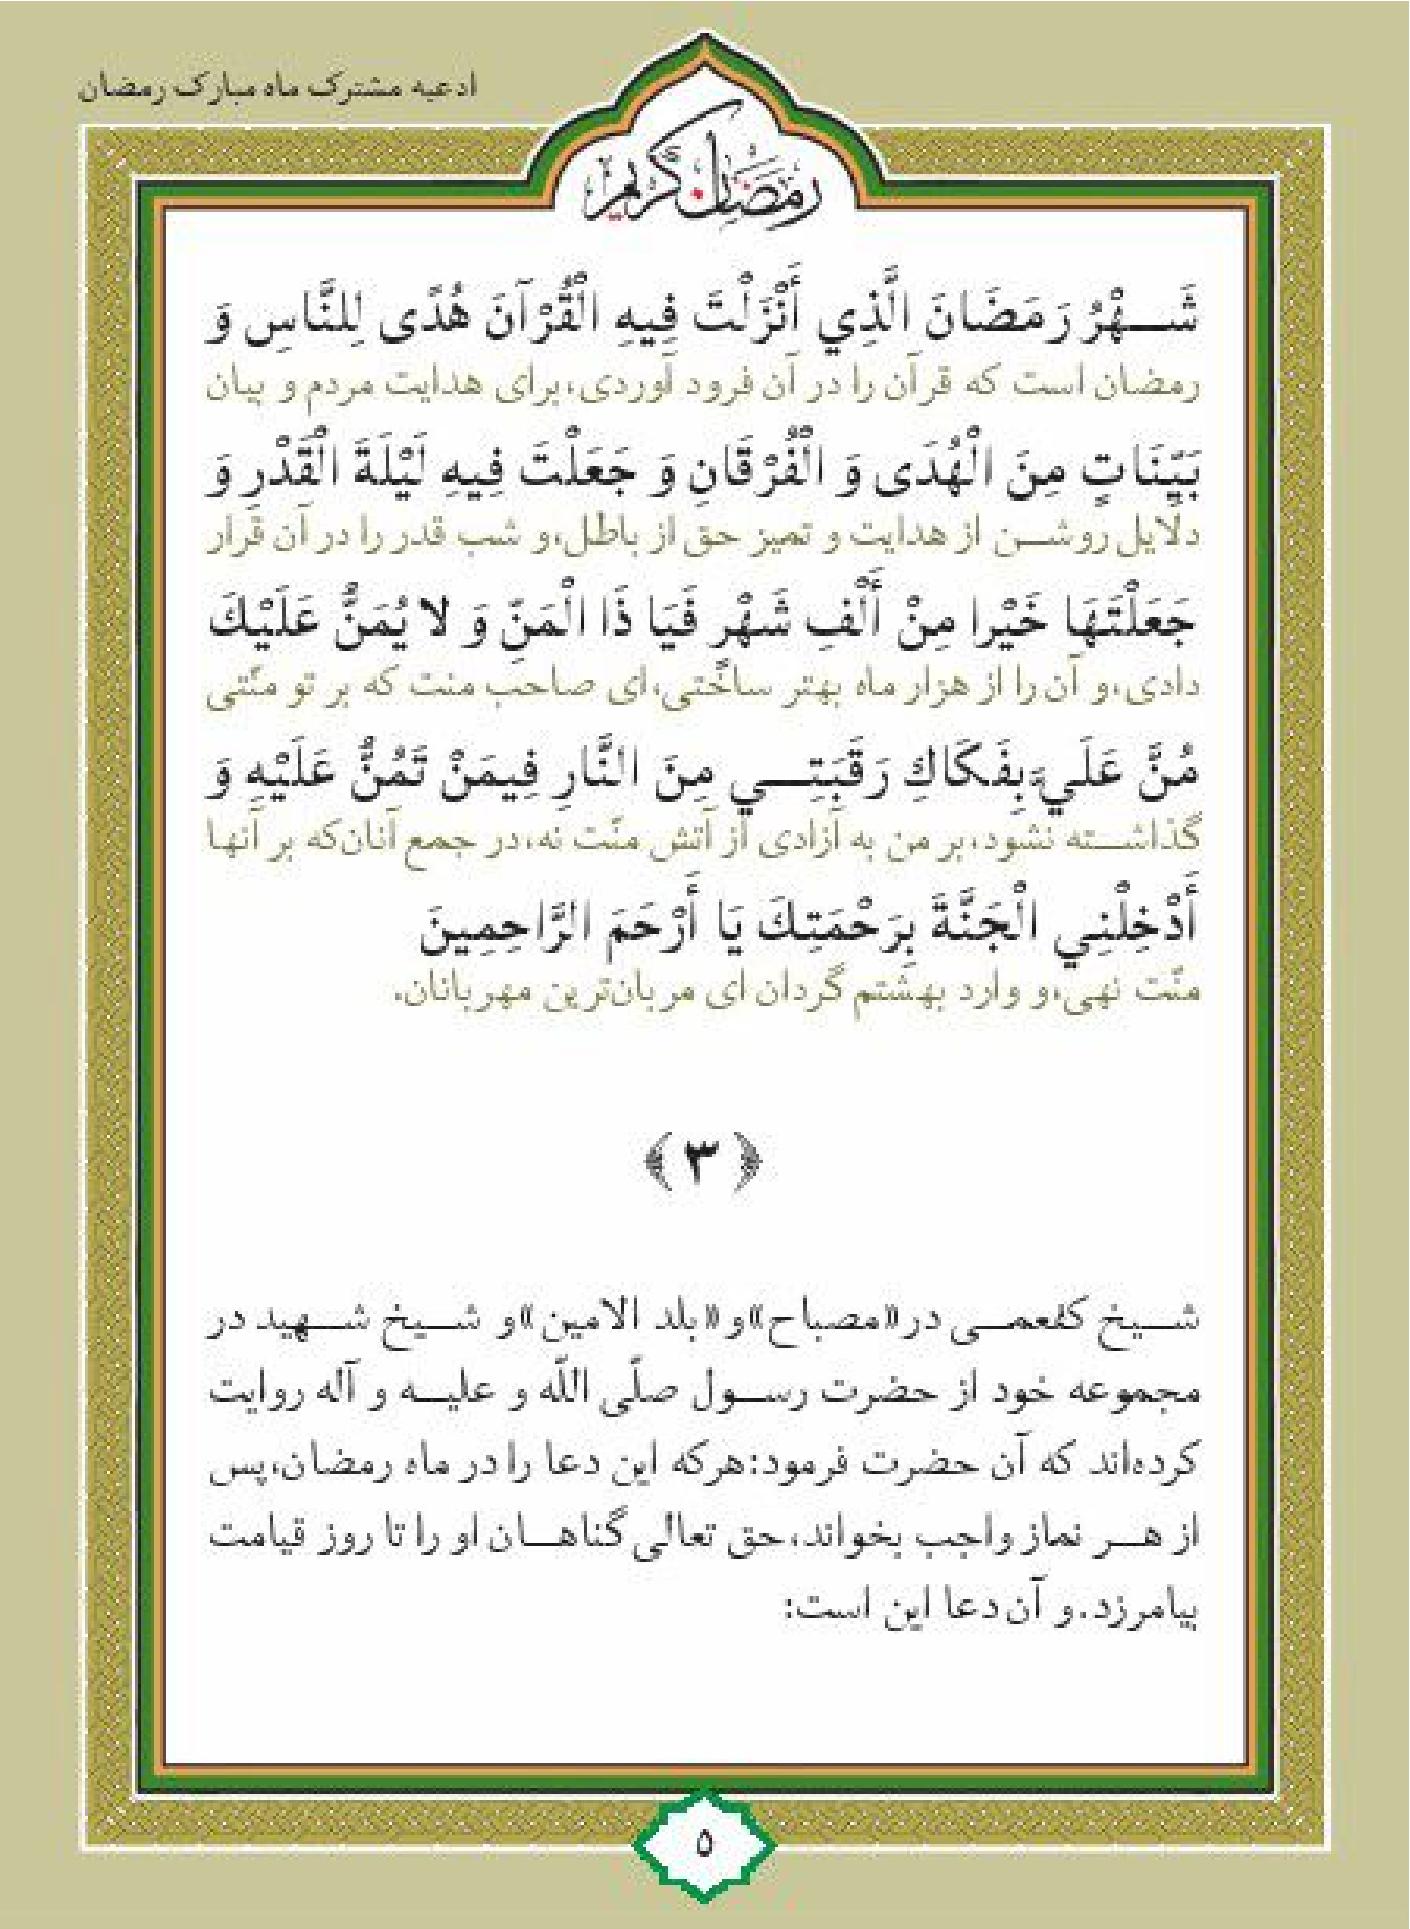 ادعیه مشترک ماه مبارک رمضان
رمضان کریم
شَهْرُ رَمَضَانَ الَّذِي أَنْزَلْتَ فِيهِ الْقُرْآنَ هُدًى لِلنَّاسِ وَ
رمضان است که قرآن را در آن فرود آوردی،برای هدایت مردم و بیان
بَيِّنَاتٍ مِنَ الْهُدَى وَ الْفُرْقَانِ وَ جَعَلْتَ فِيهِ لَيْلَةَ الْقَدْرِ وَ
دلایل روشن از هدایت و تمیز حق از باطل،و شب قدر را در آن قرار
جَعَلْتَهَا خَيْرا مِنْ أَلْفِ شَهْرٍ فَيَا ذَا الْمَنِّ وَ لا يُمَنُّ عَلَيْكَ
دادی،و آن را از هزار ماه بهتر ساختی،ای صاحب منت که بر تو منّتی
مُنَّ عَلَيَّ بِفَكَاكِ رَقَبَتِي مِنَ النَّارِ فِيمَنْ تَمُنُّ عَلَيْهِ وَ
گذاشته نشود،بر من به آزادی از آتش منّت نه،در جمع آنان‌که بر آنها
أَدْخِلْنِي الْجَنَّةَ بِرَحْمَتِكَ يَا أَرْحَمَ الرَّاحِمِينَ
منّت نهی،و وارد بهشتم گردان ای مربان‌ترین مهربانان.
﴿۳﴾
شیخ کفعمی در«مصباح»و«بلد الامین»و شیخ شهید در
مجموعه خود از حضرت رسول صلّی اللّه و علیه و آله روایت
کرده‌اند که آن حضرت فرمود:هرکه این دعا را در ماه رمضان،پس
از هر نماز واجب بخواند،حق تعالی گناهان او را تا روز قیامت
بیامرزد.و آن دعا این است:
۵